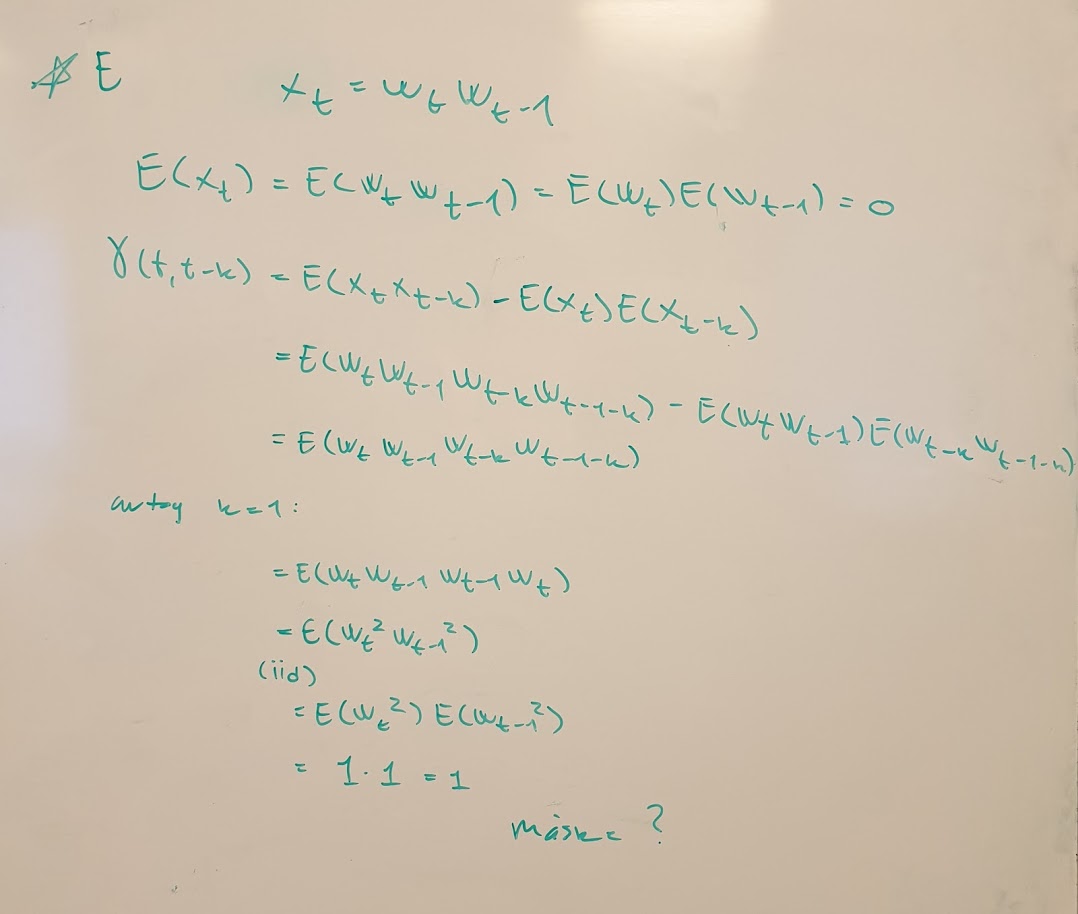 E
x_t = w_t w_t-1
E(x_t) = E(w_t w_t-1) = E(w_t)E(w_t-1) = 0
γ(t,t-k) = E(x_t x_t-k) - E(x_t)E(x_t-k)
= E(w_t w_t-1 w_t-k w_t-1-k) - E(w_t w_t-1)E(w_t-k w_t-1-k)
= E(w_t w_t-1 w_t-k w_t-1-k)
k=1:
= E(w_t w_t-1 w_t-1 w_t)
= E(w_t² w_t-1²)
(iid)
= E(w_t²) E(w_t-1²)
= 1·1 = 1
måske ?